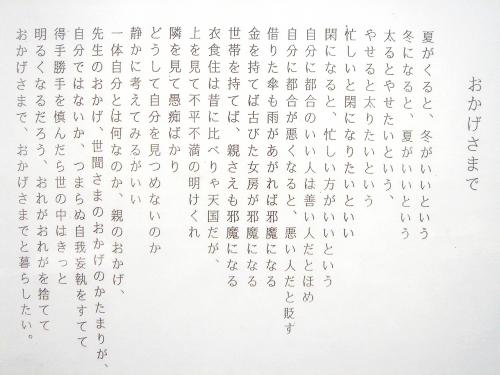 おかげさまで
夏がくると、冬がいいという
冬になると、夏がいいという
太るとやせたいという、
やせると太りたいという
忙しいと閑になりたいといい
閑になると、忙しい方がいいという
自分に都合のいい人は善い人だとほめ
自分に都合が悪くなると、悪い人だと貶す
借りた傘も雨があがれば邪魔になる
金を持てば古びた女房が邪魔になる
世帯を持てば、親さえも邪魔になる
衣食住は昔に比べりゃ天国だが、
上を見て不平不満の明けくれ
隣を見て愚痴ばかり
どうして自分を見つめないのか
静かに考えてみるがいい
一体自分とは何なのか、親のおかげ、
先生のおかげ、世間さまのおかげのかたまりが、
自分ではないか、つまらぬ自我妄執をすてて
得手勝手を慎んだら世の中はきっと
明るくなるだろう、おれがおれがを捨てて
おかげさまで、おかげさまでと暮らしたい。